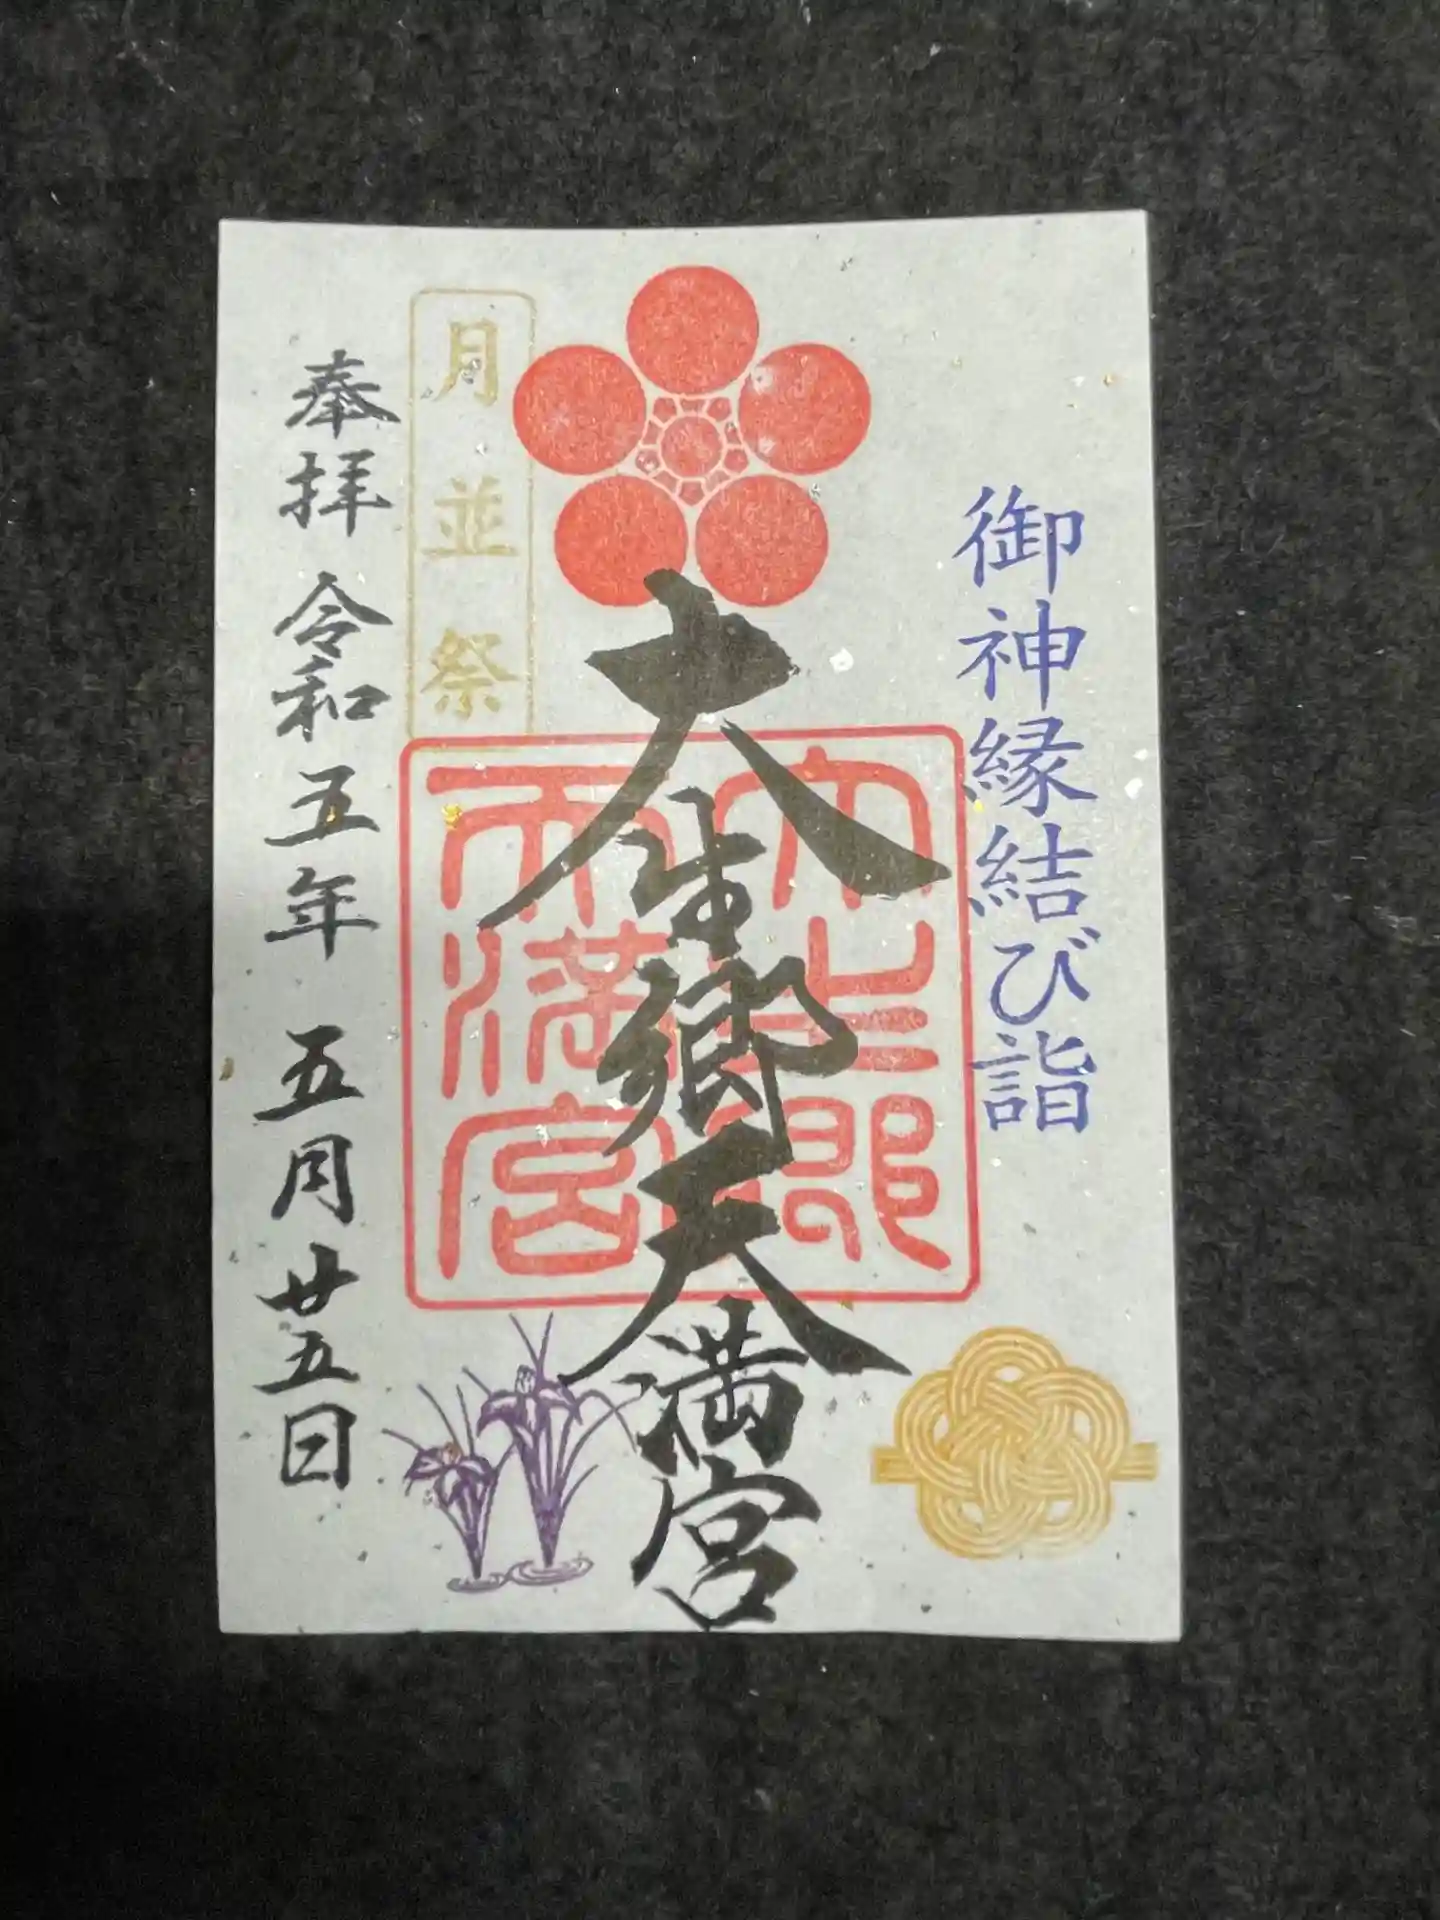 御神縁結び詣
大生郷天満宮
大生郷天満宮
月並祭
奉拝 令和五年 五月廿五日